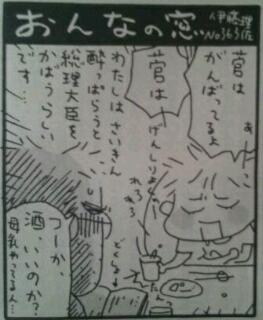 おんなの窓
伊藤理佐
No365
あ…
菅は
がんばってるよ
菅は
げんしりょく
れろ
れろ
わたしはさいきん
酔っぱらうと
総理大臣を
かばうらしい
です…
どくしょ
たん
つーか、
酒、いいのか？
母乳やってる人…